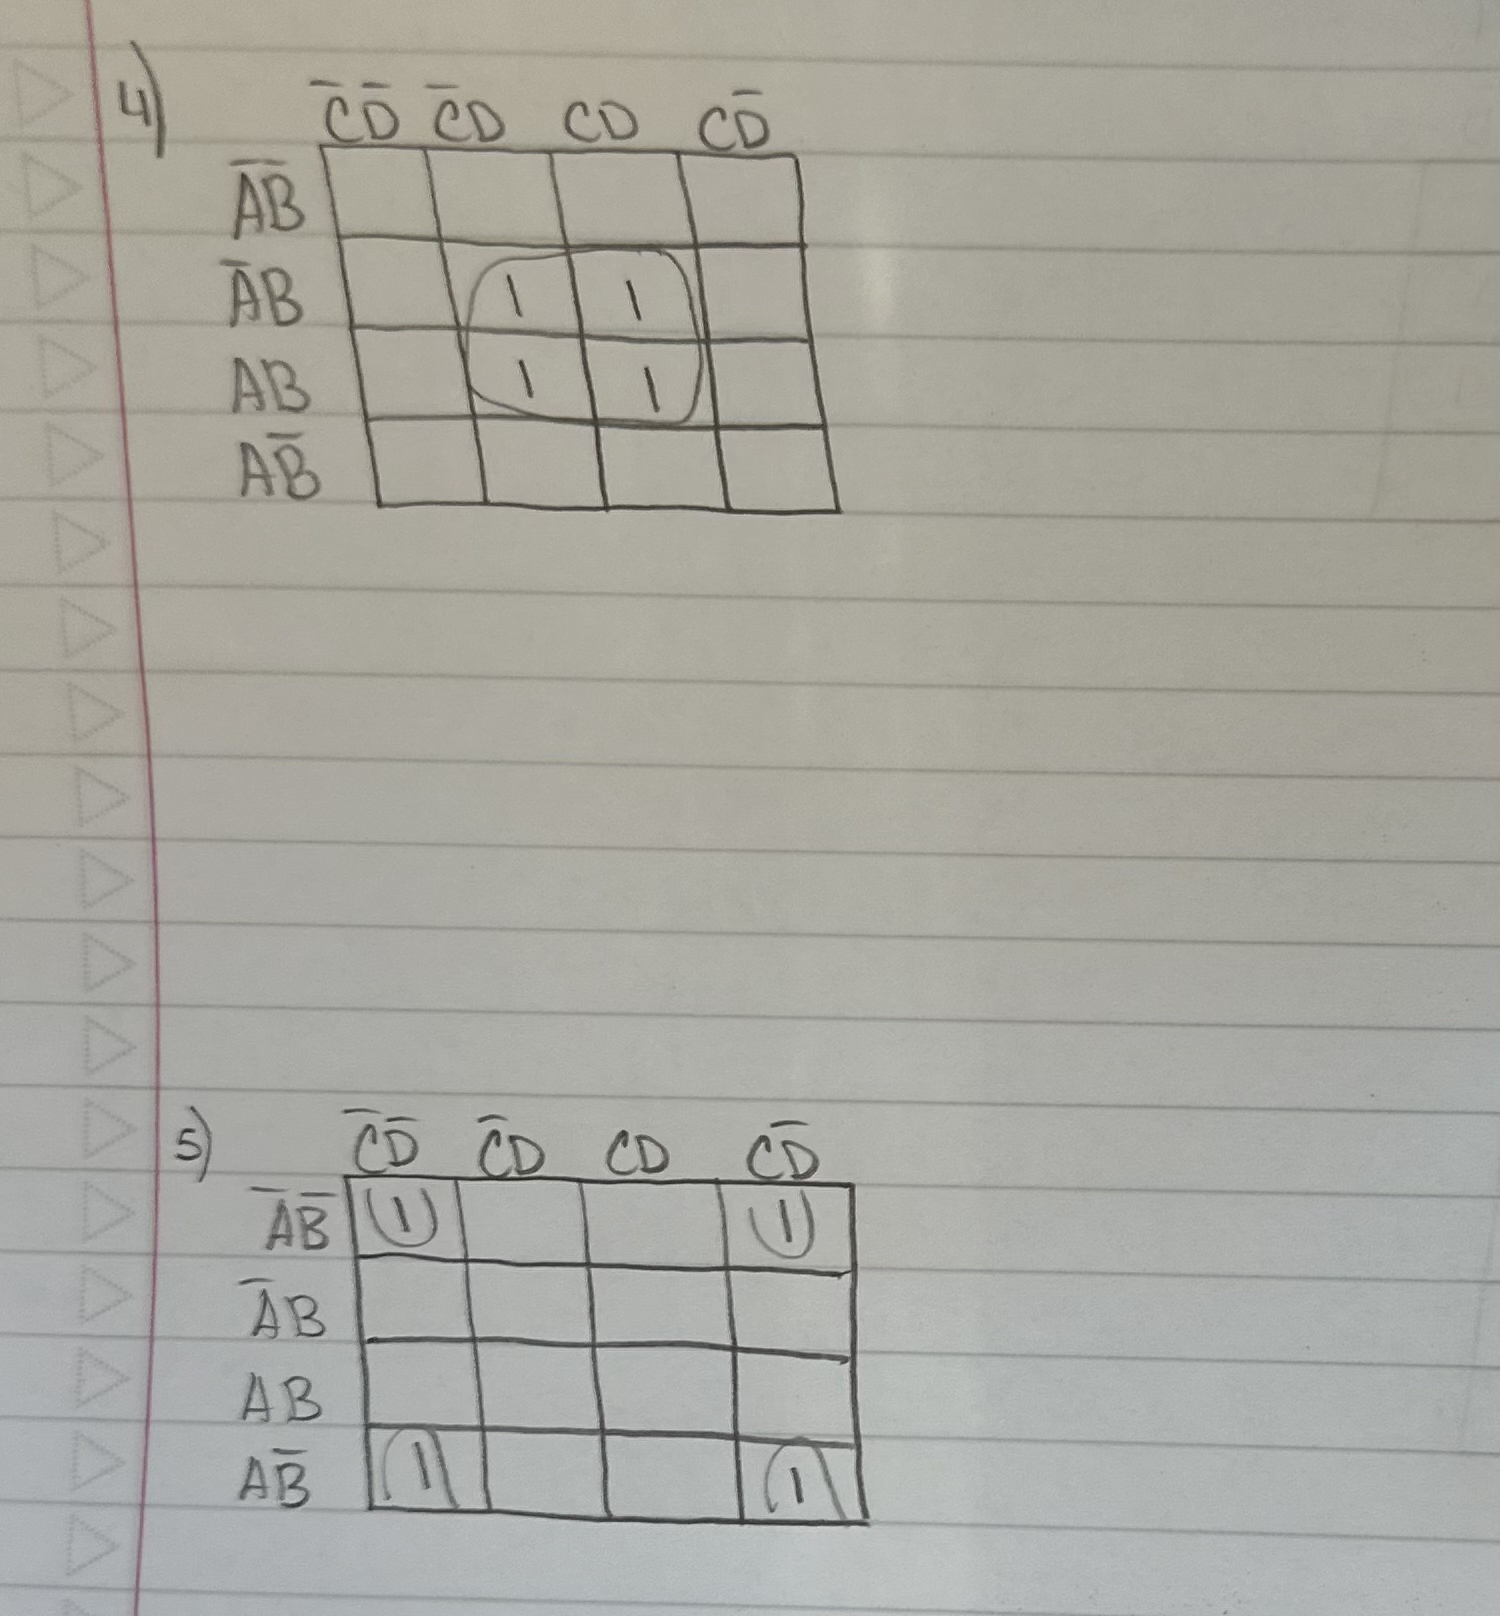 4)
C̅D̅ C̅D CD CD̅
A̅B̅
A̅B 1 1
AB 1 1
AB̅
5)
C̅D̅ C̅D CD CD̅
A̅B̅ 1 1
A̅B
AB
AB̅ 1 1